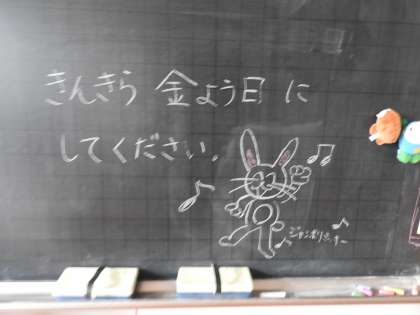 きんきら 金よう日 に
してください。
ジャンボリミッキー